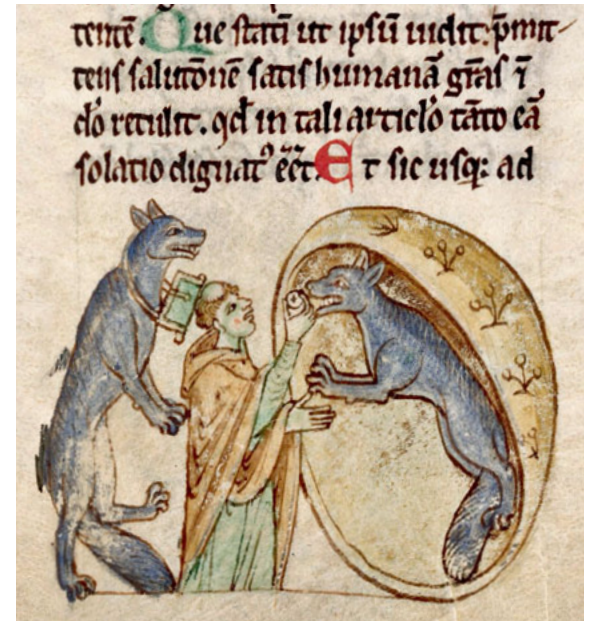 tentē. Que statī ut ipsū uidit: p̄mit-
tens salutōnē satis humanā grās ī
dō retulit. qd̄ in tali articlo tāto eā
solatio dignatꝰ eēt. Et sic usq; ad